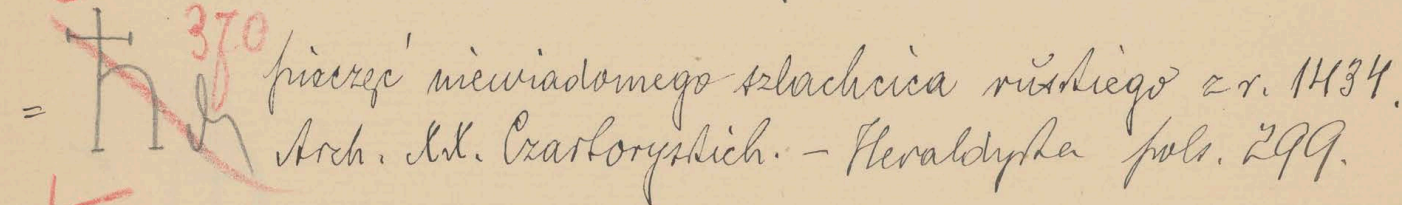 370
= pieczęć niewiadomego szlachcica ruskiego z r. 1434.
Arch. XX. Czartoryskich. – Heraldyka pols. 299.